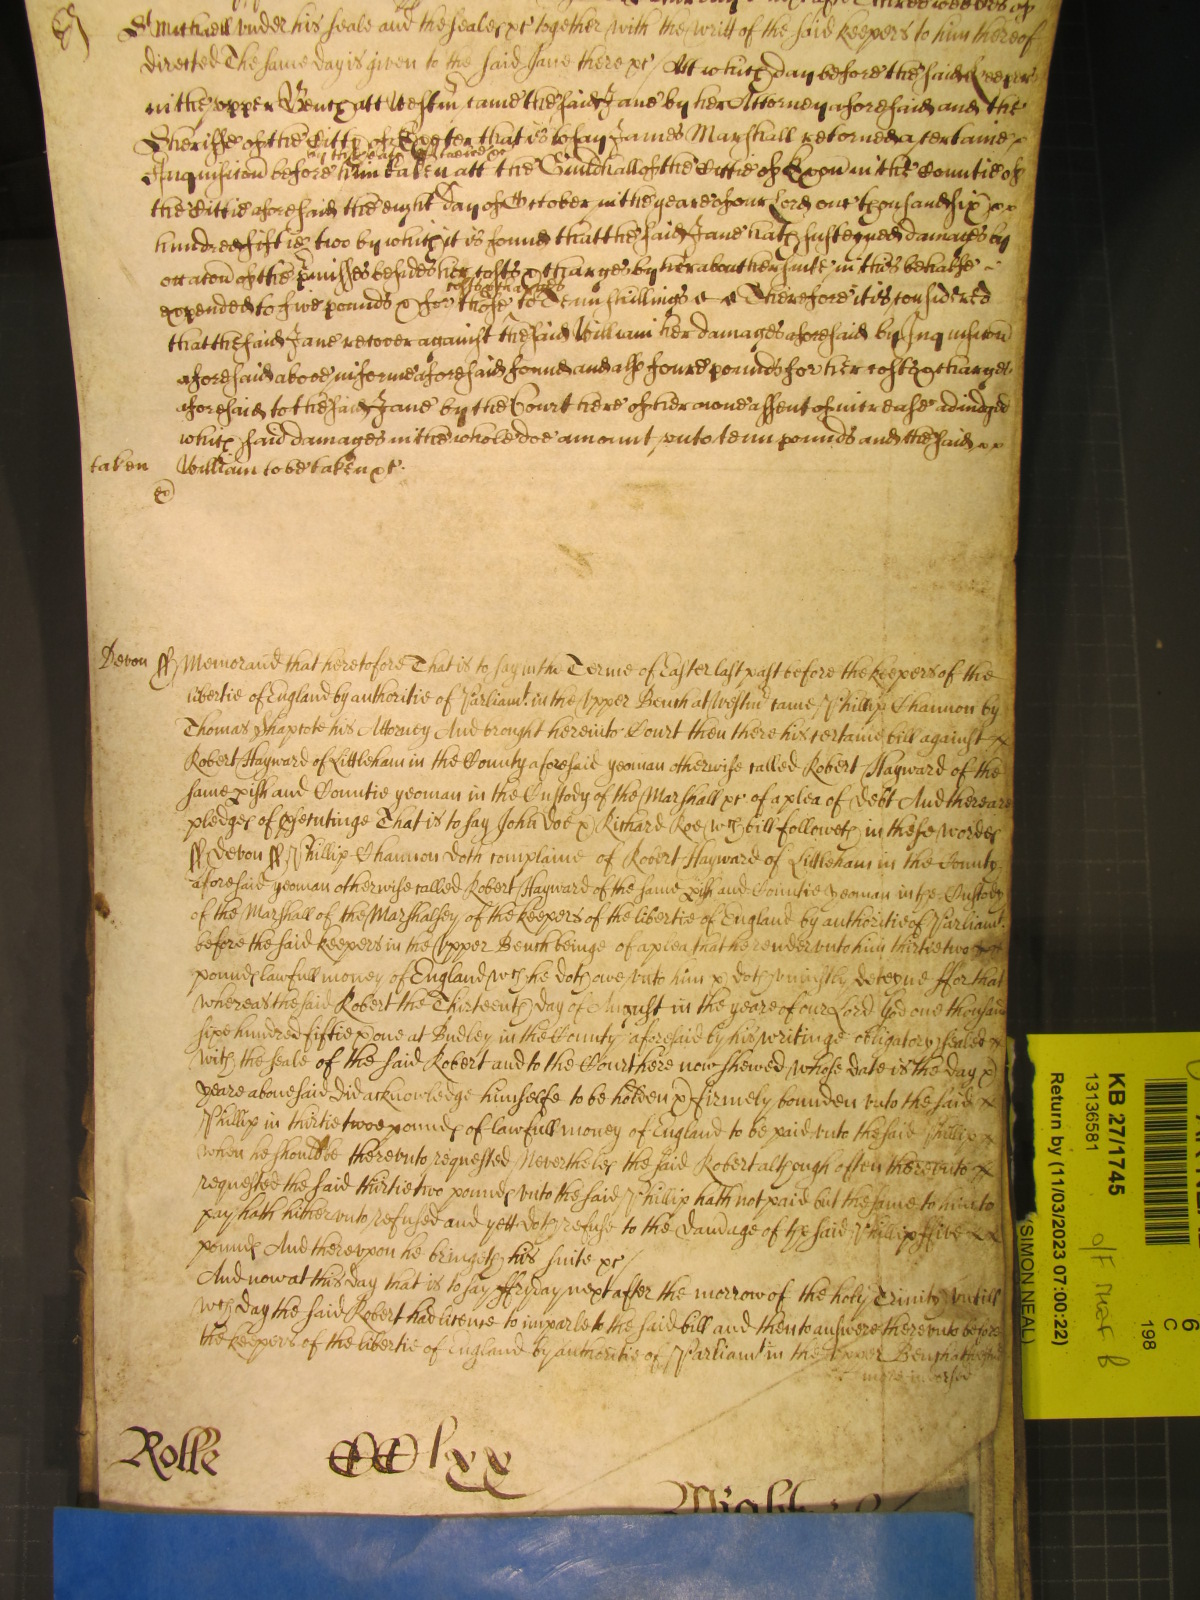 St Michaell under his seale and the seales &c together with the writt of the said keepers to him thereof
directed The same day is given to the said Jane there &c / Att which day before the said keepers
in the upper Bench att Westm came the said Jane by her Attorney aforesaid and the
Sheriffe of the Citty of Exeter that is to say James Marshall retorned a certaine
Inquisicon before him taken att the Guildhall of the Cittie of Exon in the Countie of
the Cittie aforesaid the eight day of October in the yeare of our Lord one thousand six
hundred fiftie two by which it is found that the said Jane hath susteyned damages by
occacon of the pmisses besides her costs & charges by her about her suite in this behalfe
expended to five pounds & for those costs & charges to Tenn shillings Therefore it is considered
that the said Jane recover against the said William her damages aforesaid by Inquisicon
aforesaid above in forme aforesaid found and also foure pounds for her costs & charges
aforesaid to the said Jane by the Court here of her owne assent of increase adiudged
which said damages in the whole doe amount unto tenn pounds and the said
taken William to be taken &c
Devon ss Memorand that heretofore That is to say in the Terme of Easter last past before the keepers of the
libertie of England by authoritie of Parliamt in the Upper Bench at Westm came Phillip Channon by
Thomas Shapcote his Attorney And brought here into Court then there his certaine bill against
Robert Hayward of Littleham in the County aforesaid yeoman otherwise called Robert Hayward of the
same pish and Countie yeoman in the Custody of the Marshall &c of a plea of Debt And there are
pledges of psecutinge That is to say John Doe & Richard Roe wch bill followeth in these wordes
ss Devon ss Phillip Channon doth complaine of Robert Hayward of Littleham in the County
aforesaid yeoman otherwise called Robert Hayward of the same pish and Countie yeoman in the Custody
of the Marshall of the Marshalsey of the keepers of the libertie of England by authoritie of Parliamt
before the said keepers in the Upper Bench beinge of a plea that he render unto him thirtie two
pounds lawfull money of England wch he doth owe unto him & doth uniustly deteyne ffor that
whereas the said Robert the Thirteenth day of August in the yeare of our Lord God one thousand
sixe hundred fiftie & one at Budley in the County aforesaid by his writinge obligatory sealed
with the seale of the said Robert and to the Court here now shewed whose date is the day &
yeare abovesaid did acknowledge himselfe to be holden & firmely bounden unto the said
Phillip in thirtie twoe pounds of lawfull money of England to be paid unto the said Phillip
when he should be thereunto requested Neverthelesse the said Robert although often thereunto
requested the said thirtie two pounds unto the said Phillip hath not paid but the same to him to
pay hath hitherunto refused and yett doth refuse to the damage of the said Phillip ffive
pounds And thereupon he bringeth his suite &c /
And now at this day that is to say ffryday next after the morrow of the holy Trinity untill
wch day the said Robert had licence to imparle to the said bill and then to answere thereunto before
the keepers of the libertie of England by authoritie of Parliamt in the Upper Bench
Rolle CClxx
KB 27/1745
13136581
Return by (11/03/2023 07:00:22)
(SIMON NEAL)
6
C
198